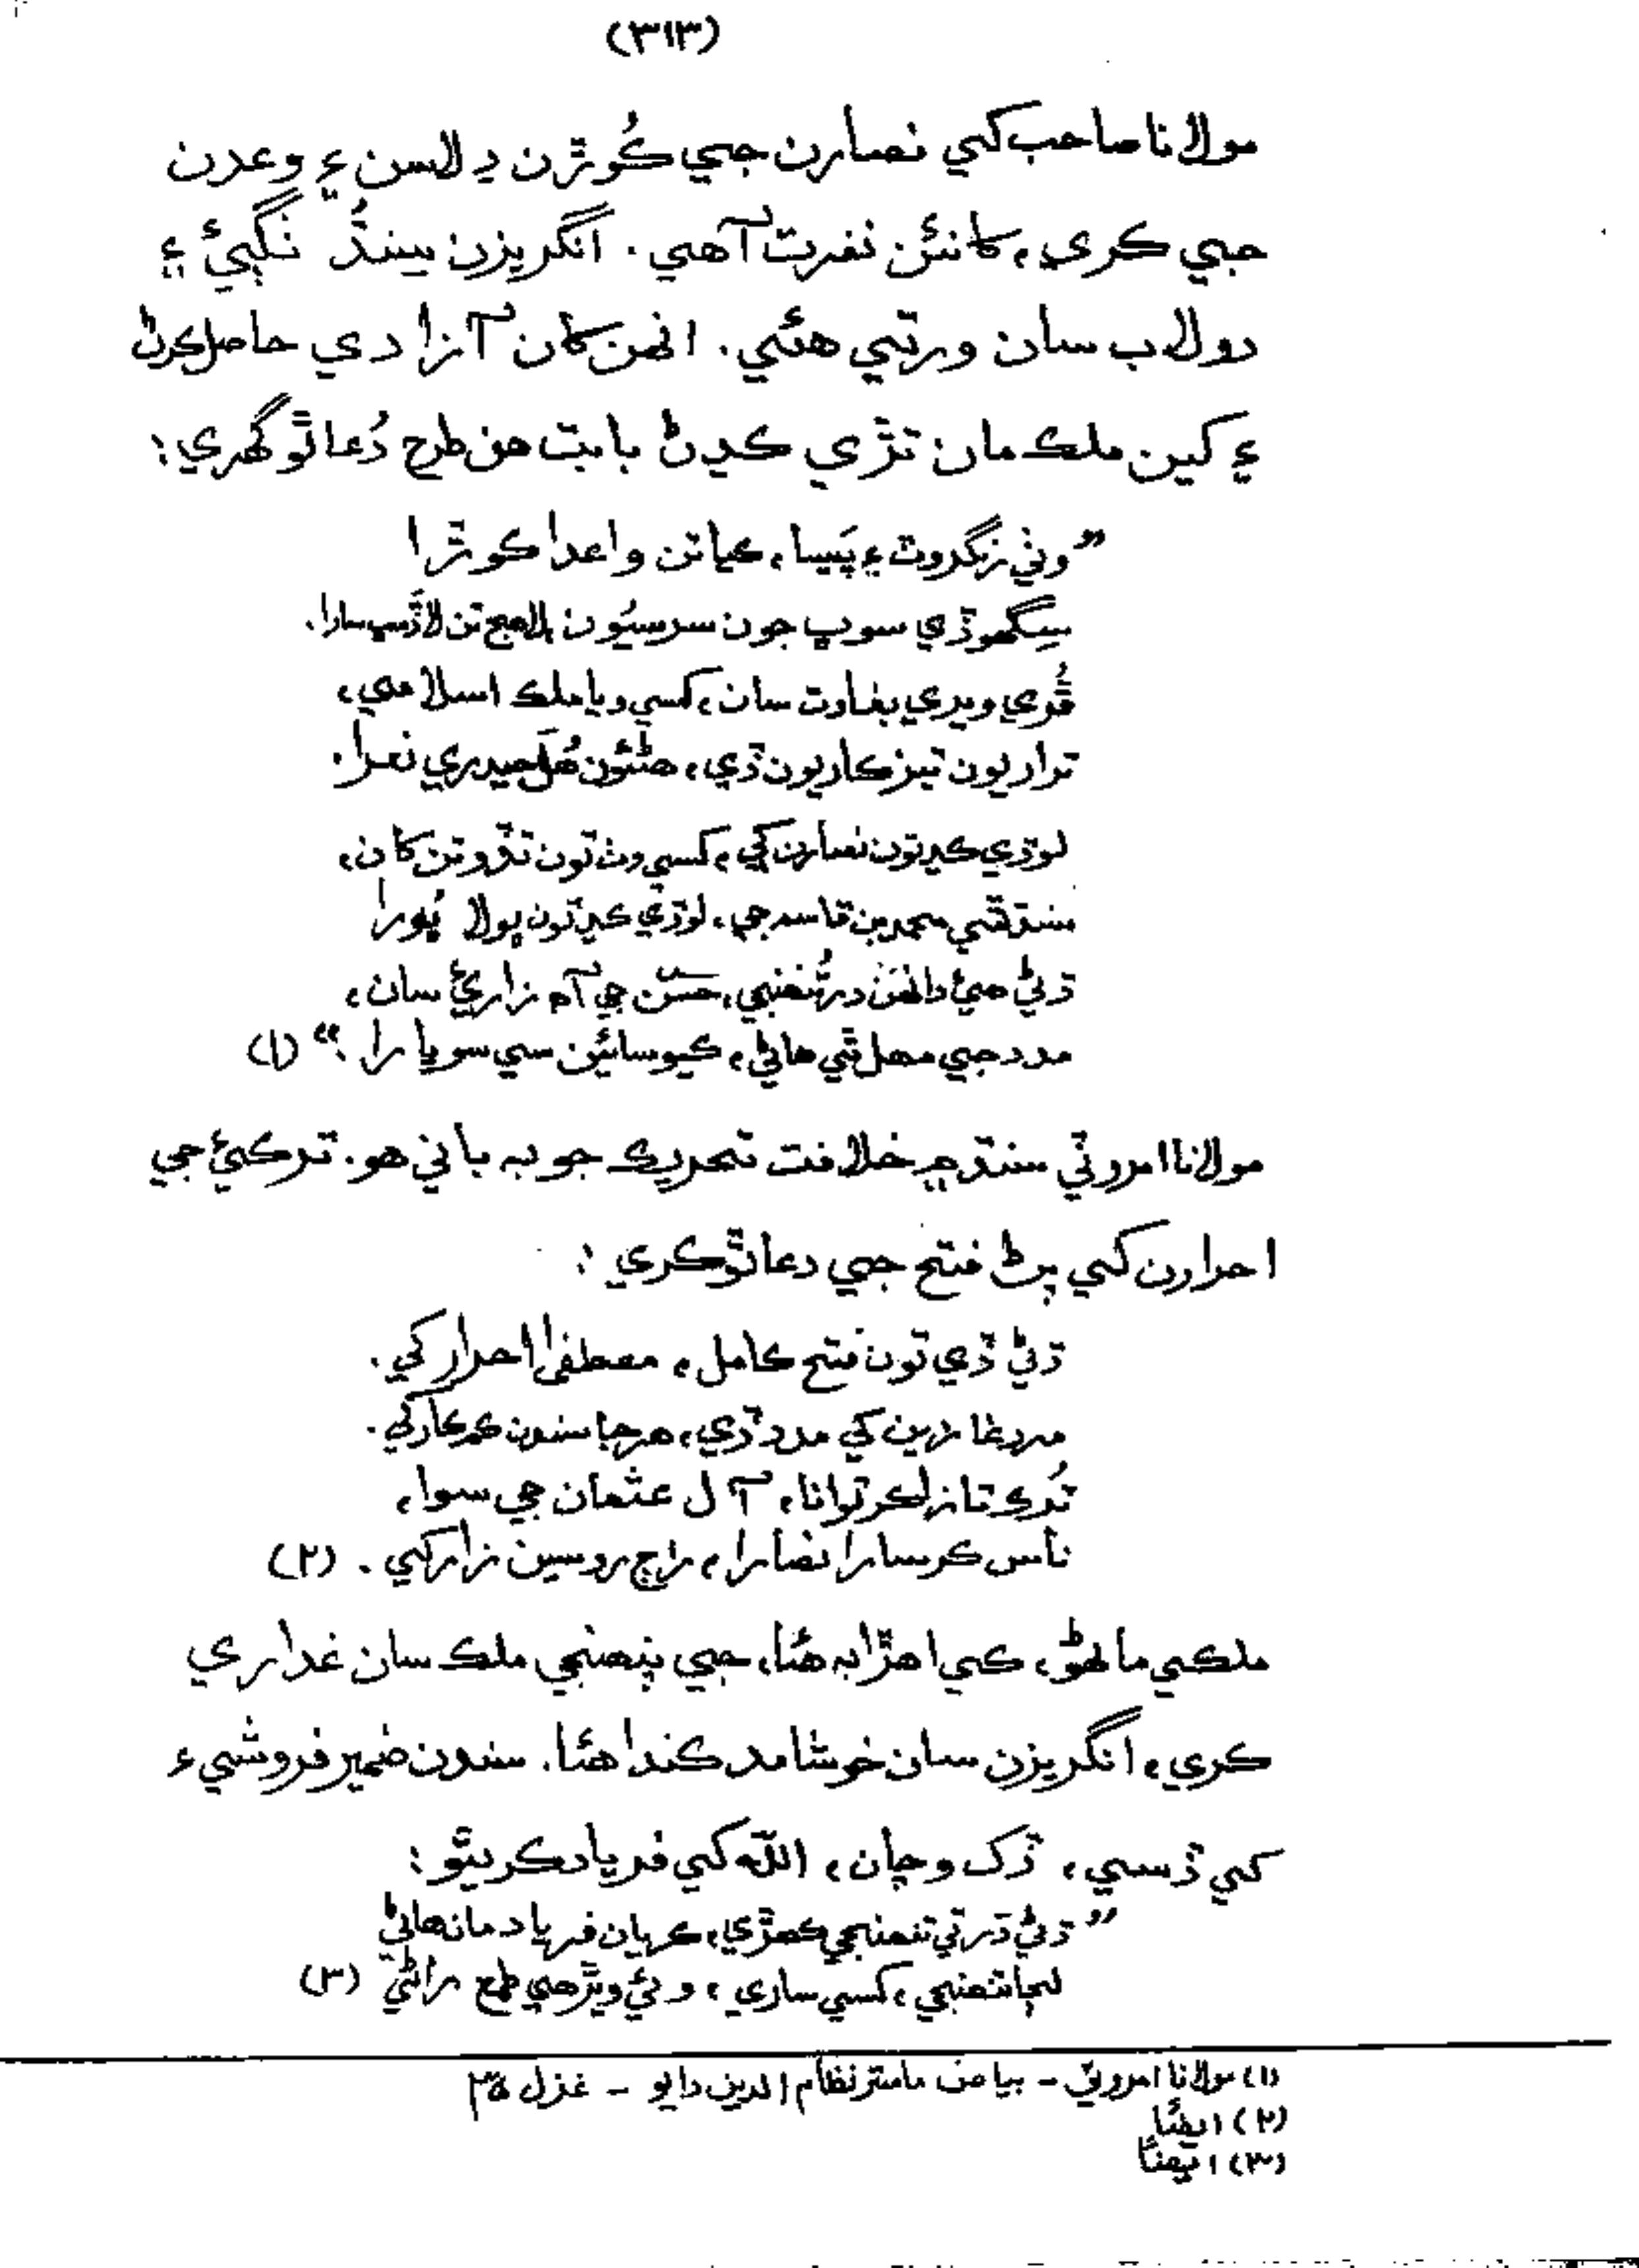 (۳۱۳)
مولانا صاحب کي نصارن جي ڪُوڙن دِلاسن ۽ وعدن
جي ڪري، کانئن نفرت آهي. انگريزن سِنڌُ ٺڳيءَ ۽
دولاب سان ورتي هئي. انهن کان آزادي حاصل ڪرڻ
۽ کين ملڪ مان تڙي ڪڍڻ بابت هن طرح دُعا ٿو گهري:
”وٺي رنگروٽ ۽ پَيسا، ڪيائن واعدا ڪوڙا
سِگهو ڏي سوڀ جون سرسيُون
ڦُري ويري بغاوت سان، کسي ويا ملڪ اسلامي،
تراريون تيز ڪاريون ڏي، هڻئون هُل حيدري نعرا.
لوڙي ڪڍ تون نصارن کي، کسي وٺ تون تڏو تن کان،
سنڌڙي محمد بن قاسم جي، لوڙي ڪڍ تون ڀولا ڀُورا
ڌڻي حسن جي آهه زاريءَ سان،
مدد جي مهل ٿي هاڻي، ڪيو سائين سي سوڀارا.“ (۱)
مولانا امروٽي سنڌ ۾ خلافت تحريڪ جو به باني هو. ترڪيءَ جي
احرارن کي پڻ فتح جي دعا ٿو ڪري:
ڌڻي ڏي تون فتح ڪامل، مصطفيٰ احرار کي.
مرد غازين کي مدد ڏي، هر جا سندن ڪم ڪار کي.
تُرڪ تازا ڪر توانا، آل عثمان جي سوا،
ناس ڪر سارا نصارا، راڄ روسين زار کي. (۲)
ملڪي ماڻهو، ڪي اهڙا به هئا، جي پنهنجي ملڪ سان غداري
ڪري، انگريزن سان خوشامد ڪندا هئا. سندن ضمير فروشيءَ
کي ڏسي، ڏک وچان، الله کي فرياد ڪري ٿو:
”ڌڻي ڌرتي تنهنجي ڪهڙي، ڪريان فرياد مان هاڻي
لڄا تنهنجي، کسي ساري، وئي ويڙهي طمع راڻي“ (۳)
(۱) مولانا امروٽي - بياض ماستر نظام الدين دايو - غزل ۳۵
(۲) ايضًا
(۳) ايضًا